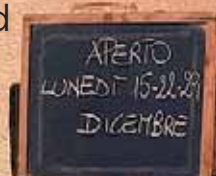 d
APERTO
LUNEDÌ 15-22-29
DICEMBRE